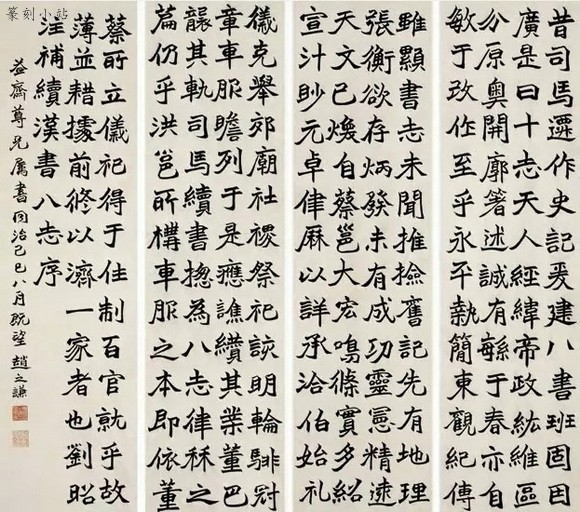 昔司馬遷作史記爰建八書班固因
廣是曰十志天人經緯帝政紘維區
分原奧開廓箸述誠有緐于春亦自
敏于改作至乎永平執簡東觀紀傳
雖顯書志未聞推撿舊記先有地理
張衡欲存炳發未有成功靈憲精遠
天文已煥自蔡邕大宏鳴條實多紹
宣汁眇元卓律厤以詳承洽伯始礼
儀克舉郊廟社禝祭祀該明輪騑冠
章車服贍列于是應譙纘其業董巴
龔其軌司馬續書揔為八志律秝之
篇仍乎洪邕所構車服之本即依董
蔡所立儀祀得于住制百官就乎故
薄並耤據前修以濟一家者也劉昭
注補續漢書八志序
益齋尊兄屬書同治己巳八月既望 趙之謙
篆刻小站